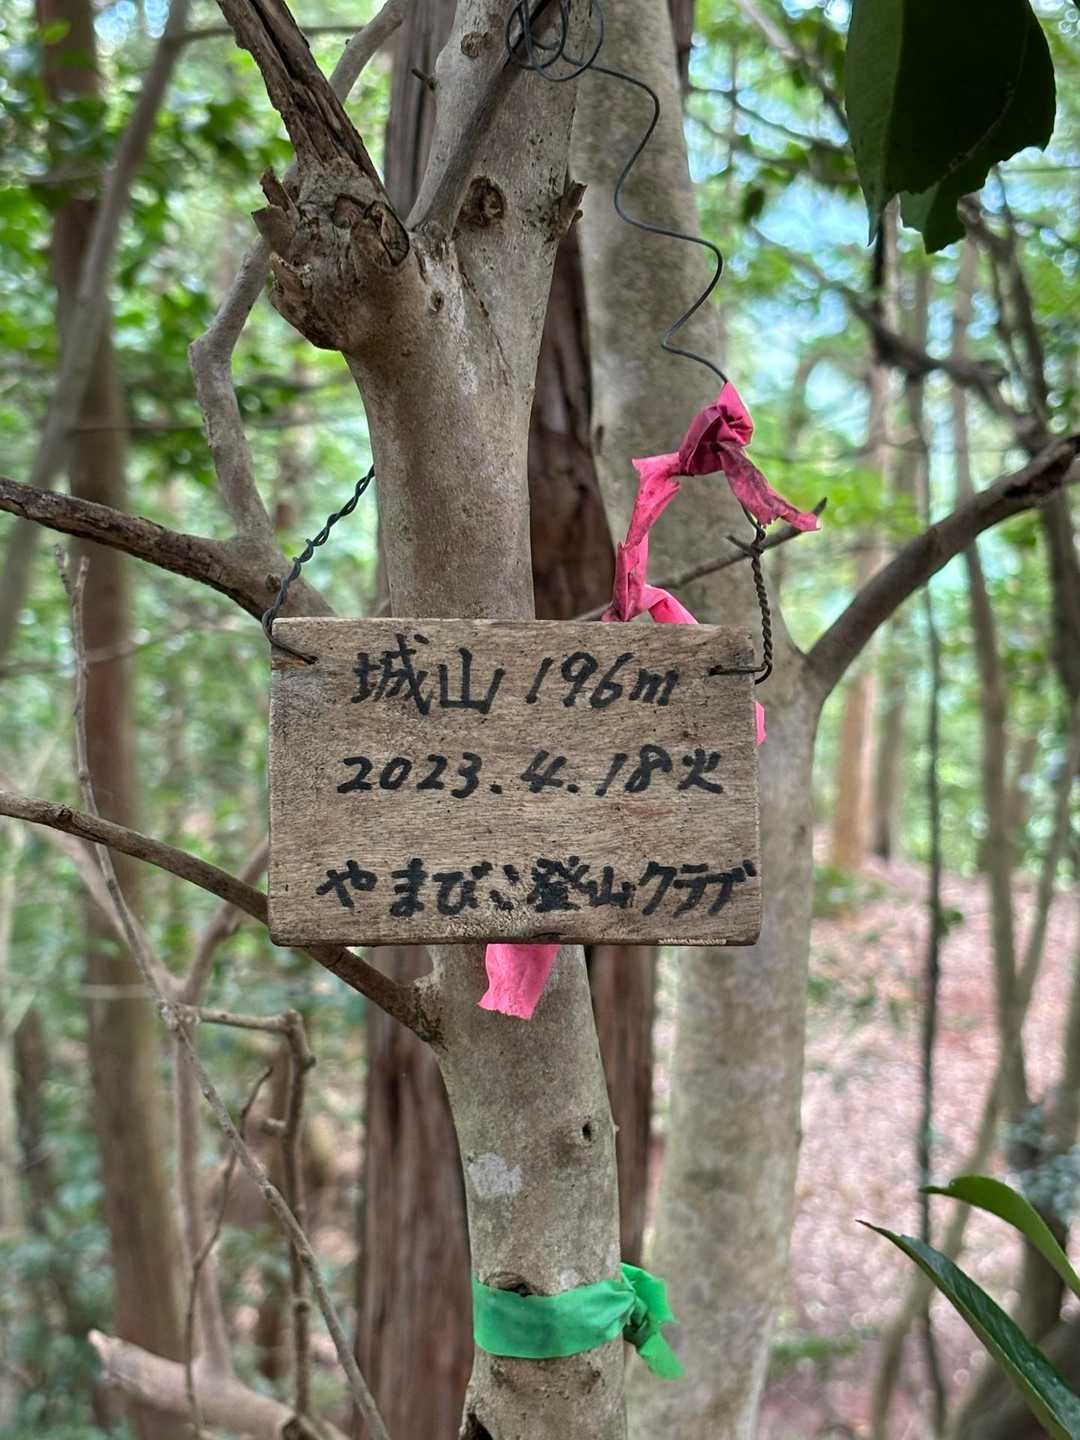 城山 196m
2023.4.18火
やまびこ登山クラブ